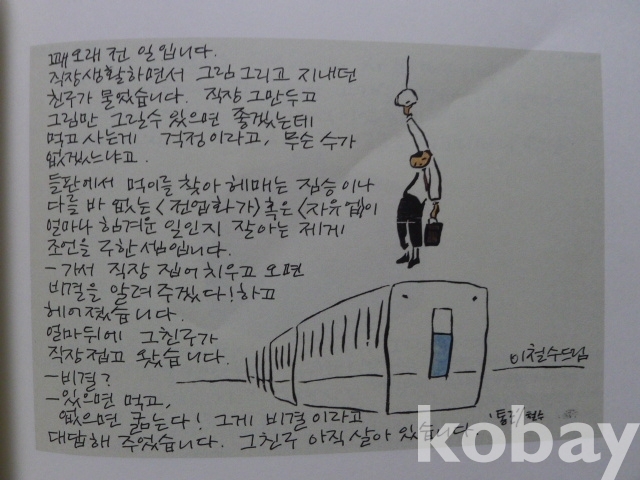 꽤 오래 전 일입니다.
직장생활하면서 그림 그리고 지내던
친구가 물었습니다. 직장 그만두고
그림만 그릴 수 있으면 좋겠는데
먹고 사는게 걱정이라고, 무슨 수가
없겠느냐고.
들판에서 먹이를 찾아 헤매는 짐승이나
다를 바 없는 <전업화가> 혹은 <자유업>이
얼마나 힘겨운 일인지 잘아는 제게
조언을 구한 셈입니다.
- 가서 직장 집어 치우고 오면
비결을 알려 주겠다! 하고
헤어졌습니다.
얼마뒤에 그친구가
직장 접고 왔습니다.
- 비결?
- 있으면 먹고,
없으면 굶는다! 그게 비결이라고
대답해 주었습니다. 그친구 아직 살아 있습니다.
이철수드림
철수
kobay